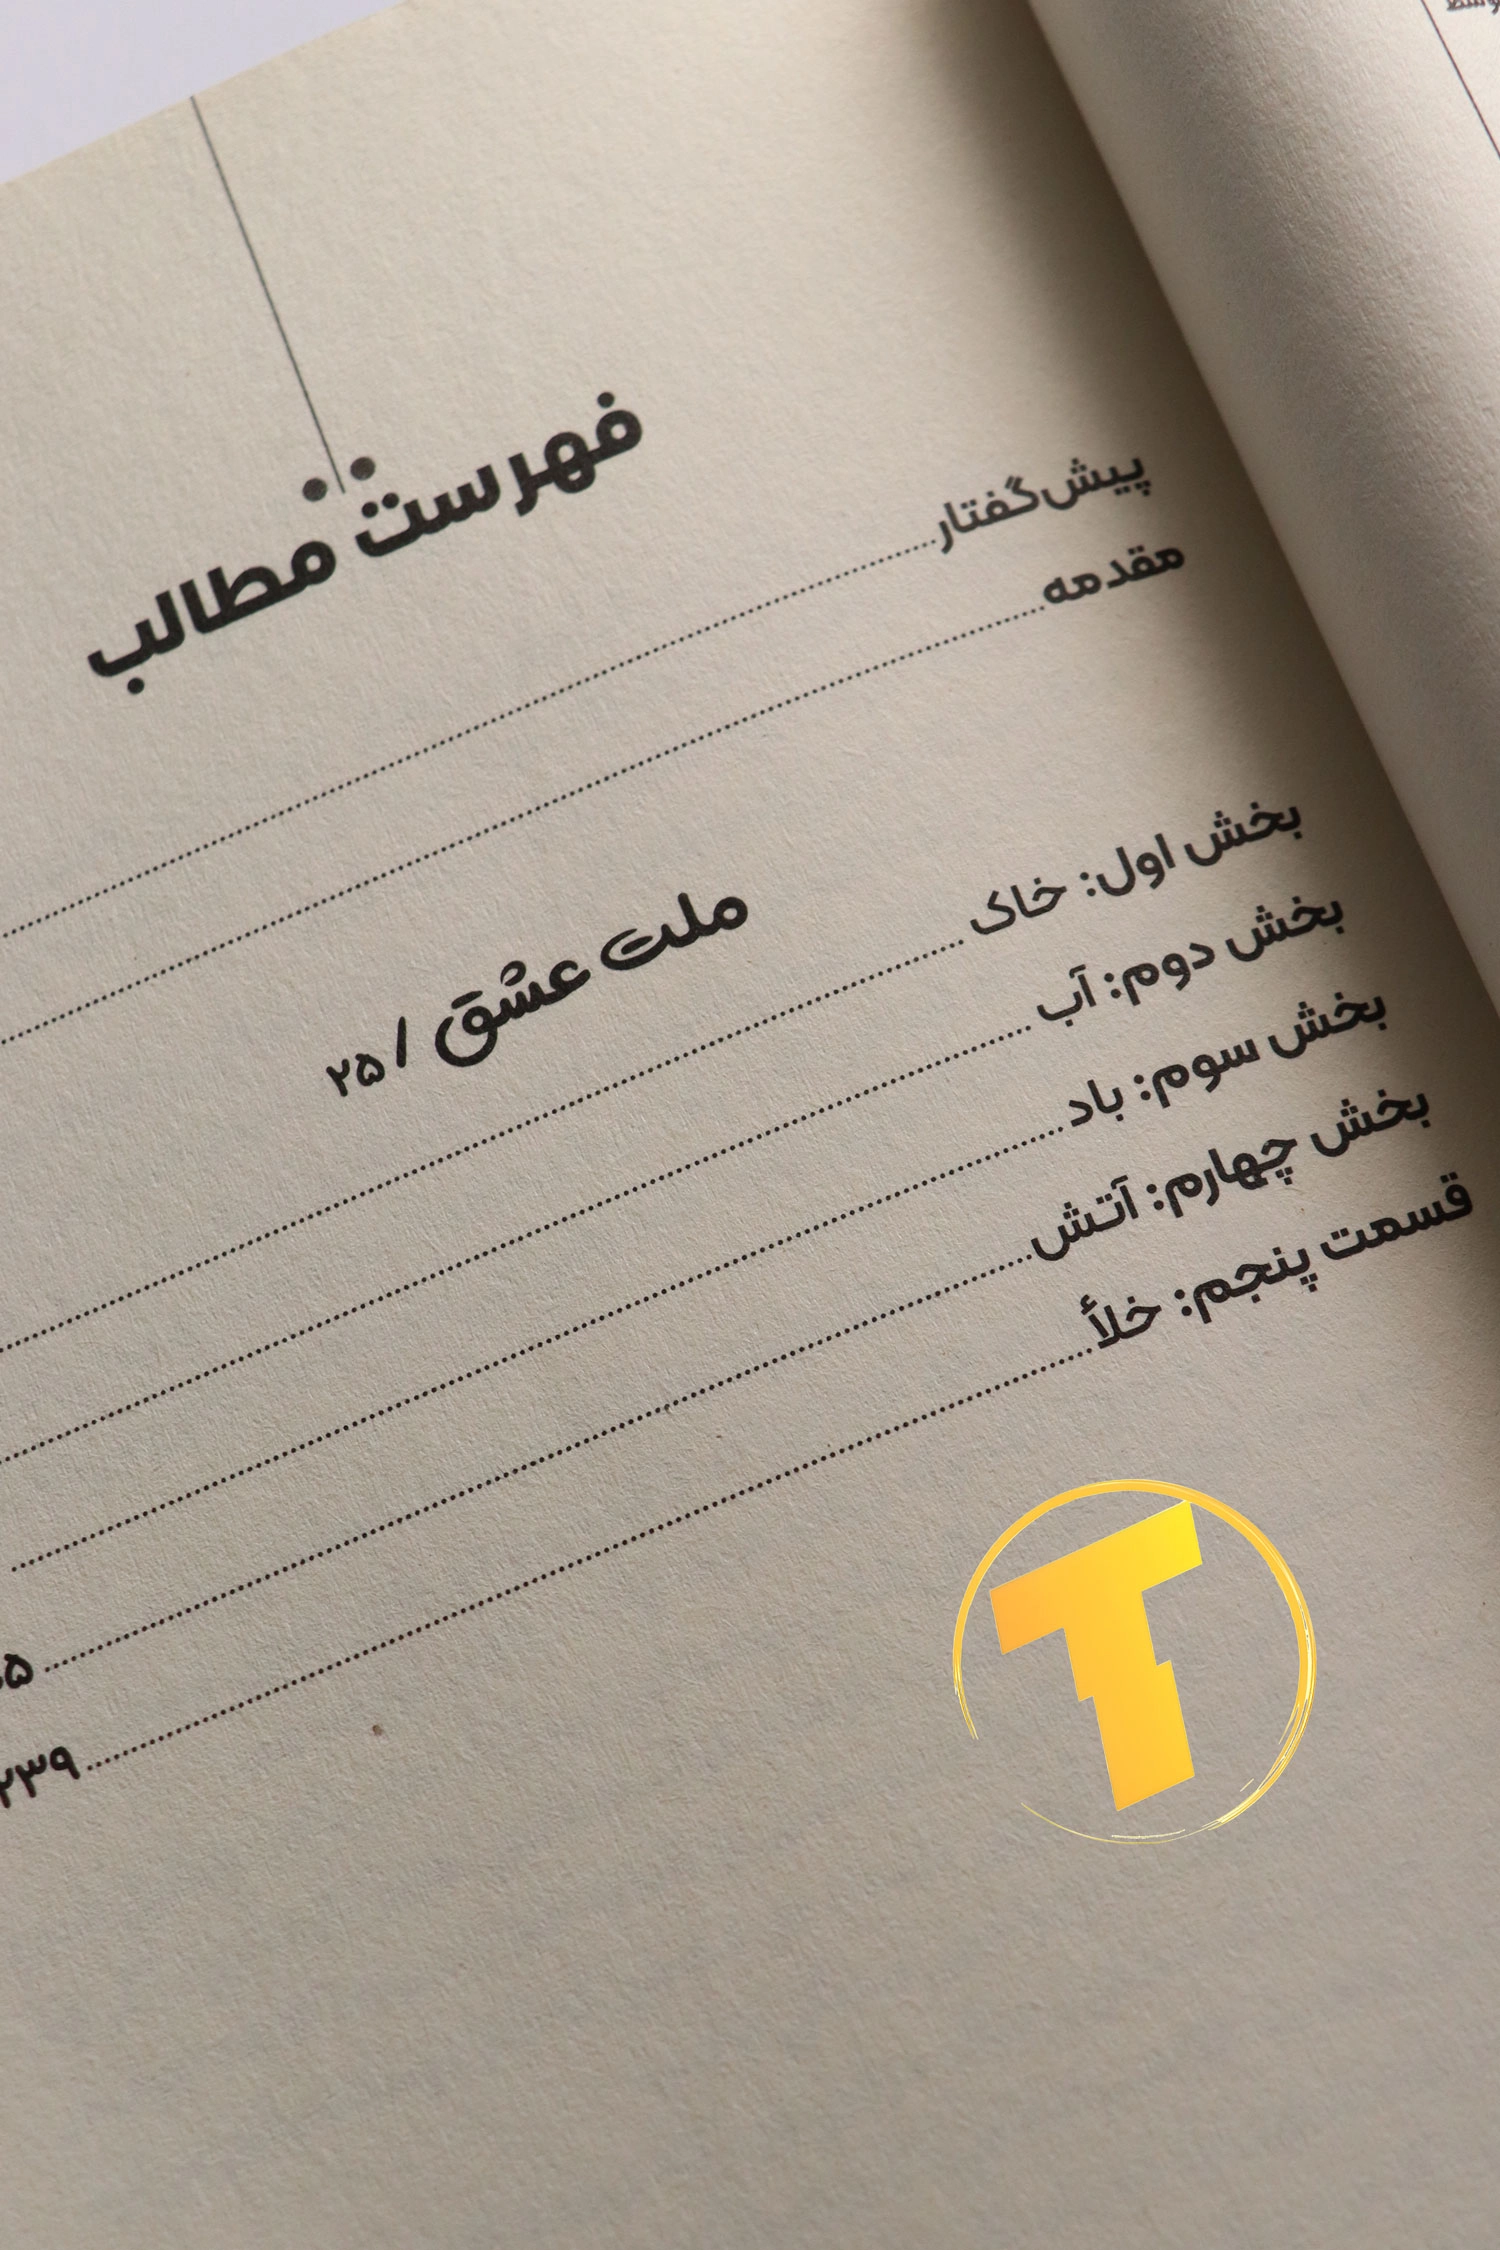 فهرست مطالب
پیش‌گفتار
مقدمه
ملت عشق / ۲۵
بخش اول: خاک
بخش دوم: آب
بخش سوم: باد
بخش چهارم: آتش
قسمت پنجم: خلأ
۲۳۹
T